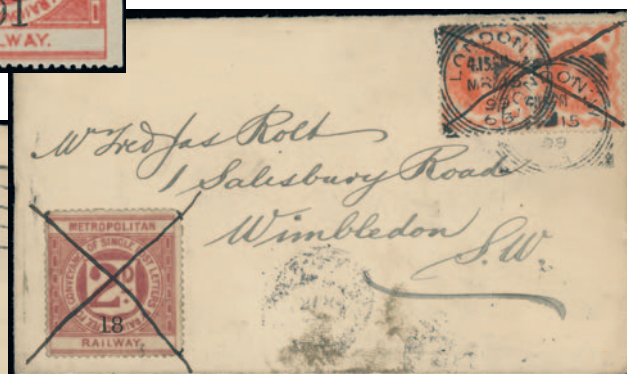 01
LWAY.
LONDON
4.15
MR
98
LONDON
15
98
Mr Fred Jas Rolt
1 Salisbury Road
Wimbledon
S.W.
METROPOLITAN
CONVEYANCE OF SINGLE POST LETTERS
2d
18
RAILWAY